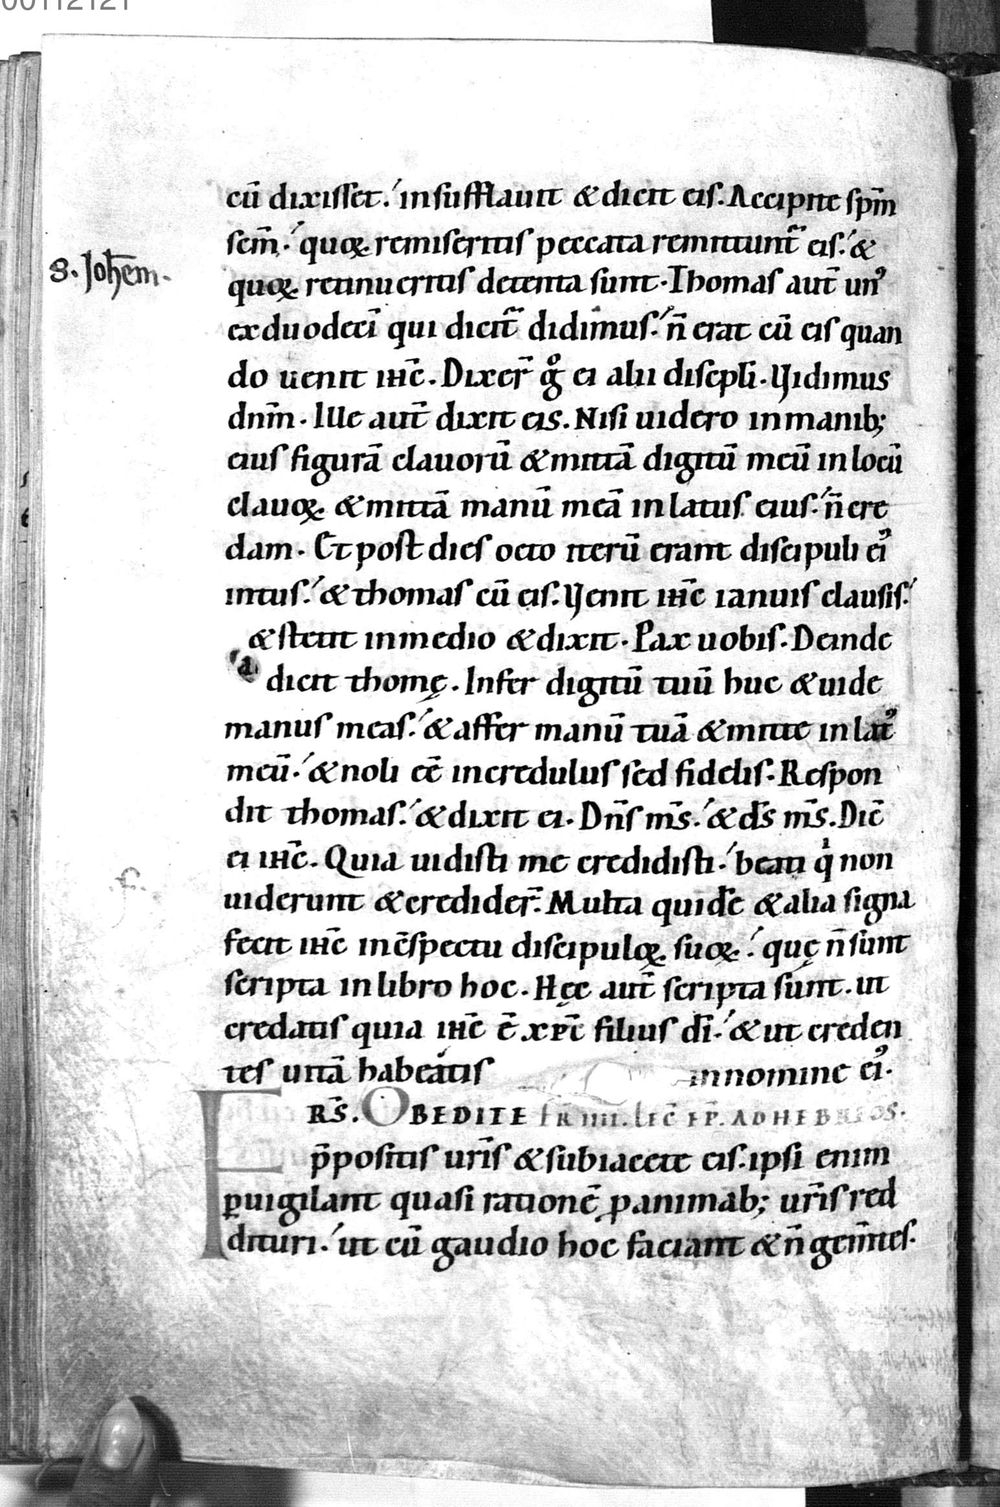 00112121
cū dixisset.' insufflauit & dicit eis. Accipite sp̄m
scm̄.' quoꝝ remiseritis peccata remittunt̄ eis.' &
S. Joh̄em.
quoꝝ retinueritis detenta sunt. Thomas aut̄ un᷒
ex duodeci̅ qui dicit̄ didimus.' n̄ erat cū eis quan
do uenit ih̄c. Dixer̄ g̊ ei alii discipli̅. Vidimus
dnm̄. Ille aut̄ dixit eis. Nisi uidero in manib;
eius figurā clauorū & mittā digitū meū in locū
clauoꝝ & mittā manū meā in latus eius.' n̄ cre
dam. Et post dies octo iterū erant discipuli ei᷒
intus.' & thomas cū eis. Venit ih̄c ianuis clausis.'
& stetit in medio & dixit. Pax uobis. Deinde
dicit thomę. Infer digitū tuū huc & uide
manus meas.' & affer manū tuā & mitte in lat᷒
meū.' & noli ēē incredulus sed fidelis. Respon
dit thomas.' & dixit ei. Dn̄s m̄s.' & d̄s m̄s. Dic̄
ei ih̄c. Quia uidisti me credidisti.' beati qͥ non
uiderunt & credider̄. Multa quidē & alia signa
fecit ih̄c in c̄spectu discipuloꝝ suoꝝ.' quę n̄ sunt
scripta in libro hoc. Hęc aut̄ scripta sunt. ut
credatis quia ih̄c ē xp̄c filius dī.' & ut creden
tes uitā habeatis in nomine ei᷒.
R̄S. OBEDITE FR IIII. LEC̄ EP̄. AD HEBREOS.
p̄positis ur̄is & subiacete eis. ipsi enim
ꝑuigilant quasi rationē ꝓ animab; ur̄is red
dituri.' ut cū gaudio hoc faciant & n̄ gem̄tes.